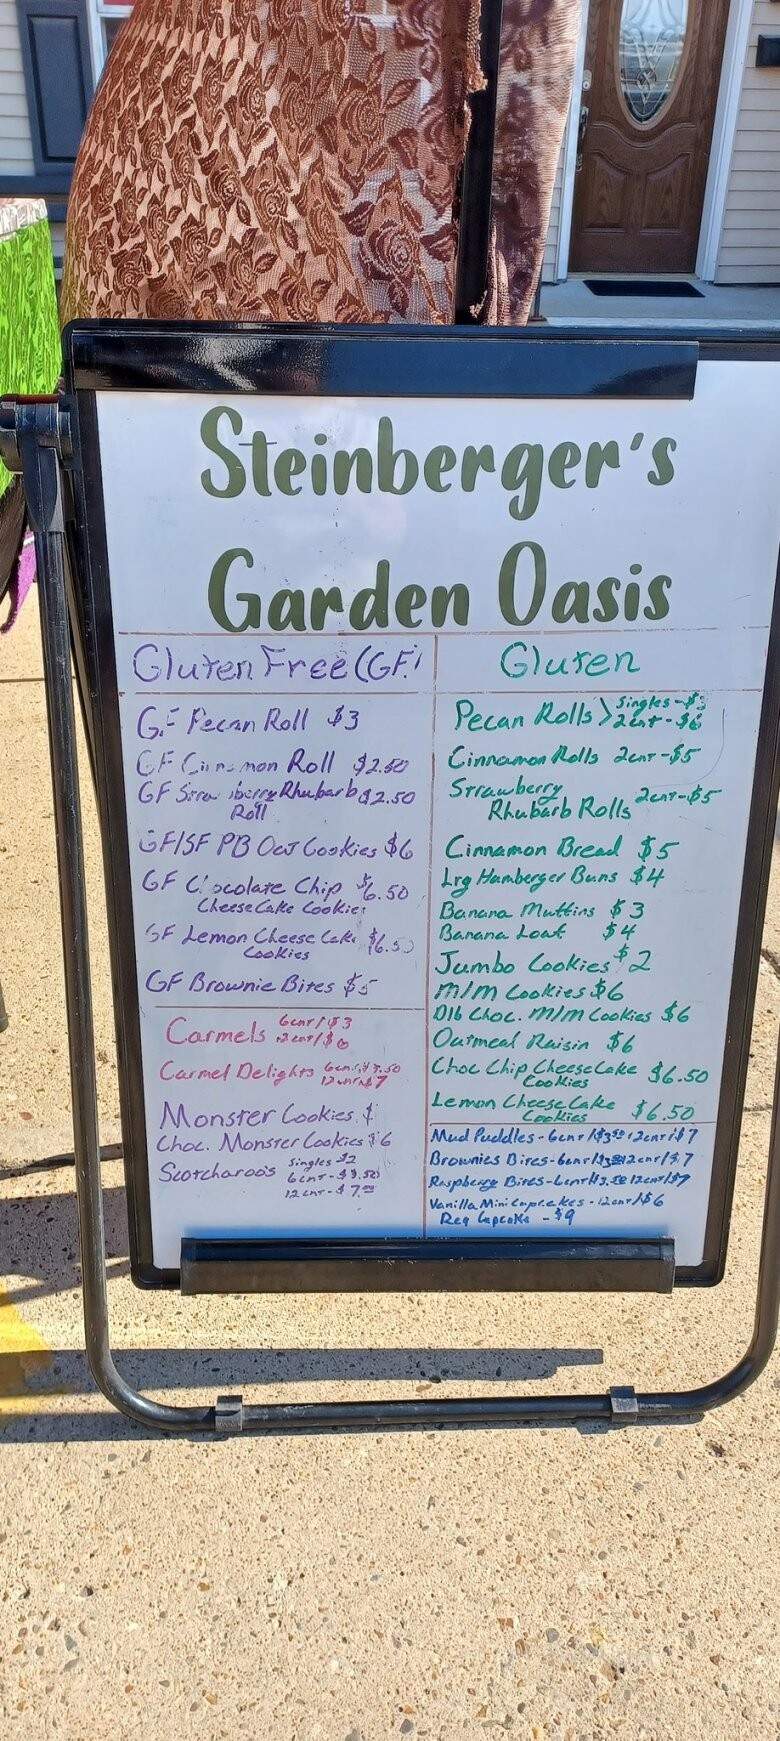 Steinberger's
Garden Oasis
Gluten Free (GF)
GF Pecan Roll $3
GF Cinnamon Roll $2.50
GF Strawberry Rhubarb $2.50
Roll
GF/SF PB Oat Cookies $6
GF Chocolate Chip $6.50
Cheese Cake Cookies
GF Lemon Cheese Cake $6.50
Cookies
GF Brownie Bites $5
Carmels 6cnt/$3
12cnt/$6
Carmel Delights 6cnt/$3.50
12cnt/$7
Monster Cookies $
Choc. Monster Cookies $6
Scotcharoos Singles $2
6cnt-$3.50
12cnt-$7.00
Gluten
Pecan Rolls > Singles-$3
2cnt-$6
Cinnamon Rolls 2cnt-$5
Strawberry
Rhubarb Rolls 2cnt-$5
Cinnamon Bread $5
Lrg Hamberger Buns $4
Banana Muffins $3
Banana Loaf $4
Jumbo Cookies $2
M/M Cookies $6
Dlb Choc. M/M Cookies $6
Oatmeal Raisin $6
Choc Chip Cheese Cake $6.50
Cookies
Lemon Cheese Cake $6.50
Cookies
Mud Puddles-6cnt/$3.50 12cnt/$7
Brownies Bites-6cnt/$3.50 12cnt/$7
Raspberry Bites-6cnt/$3.50 12cnt/$7
Vanilla Mini Cupcakes-12cnt/$6
Reg Cupcake - $9